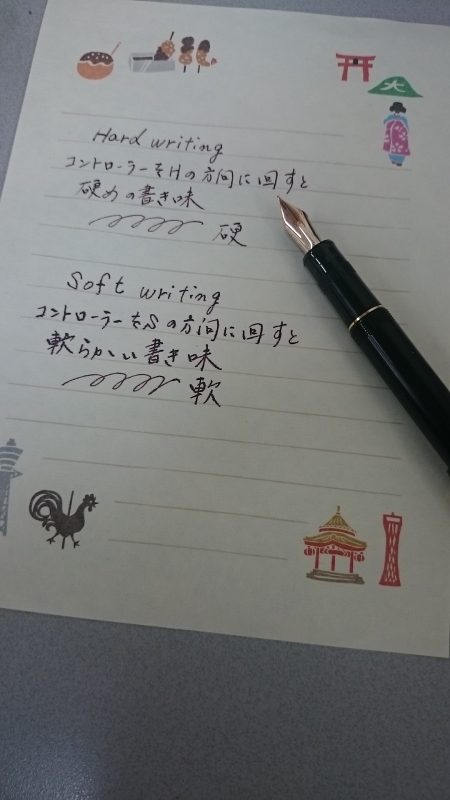 Hard writing
コントローラーをHの方向に回すと
硬めの書き味
硬
Soft writing
コントローラーをSの方向に回すと
軟らかい書き味
軟
大